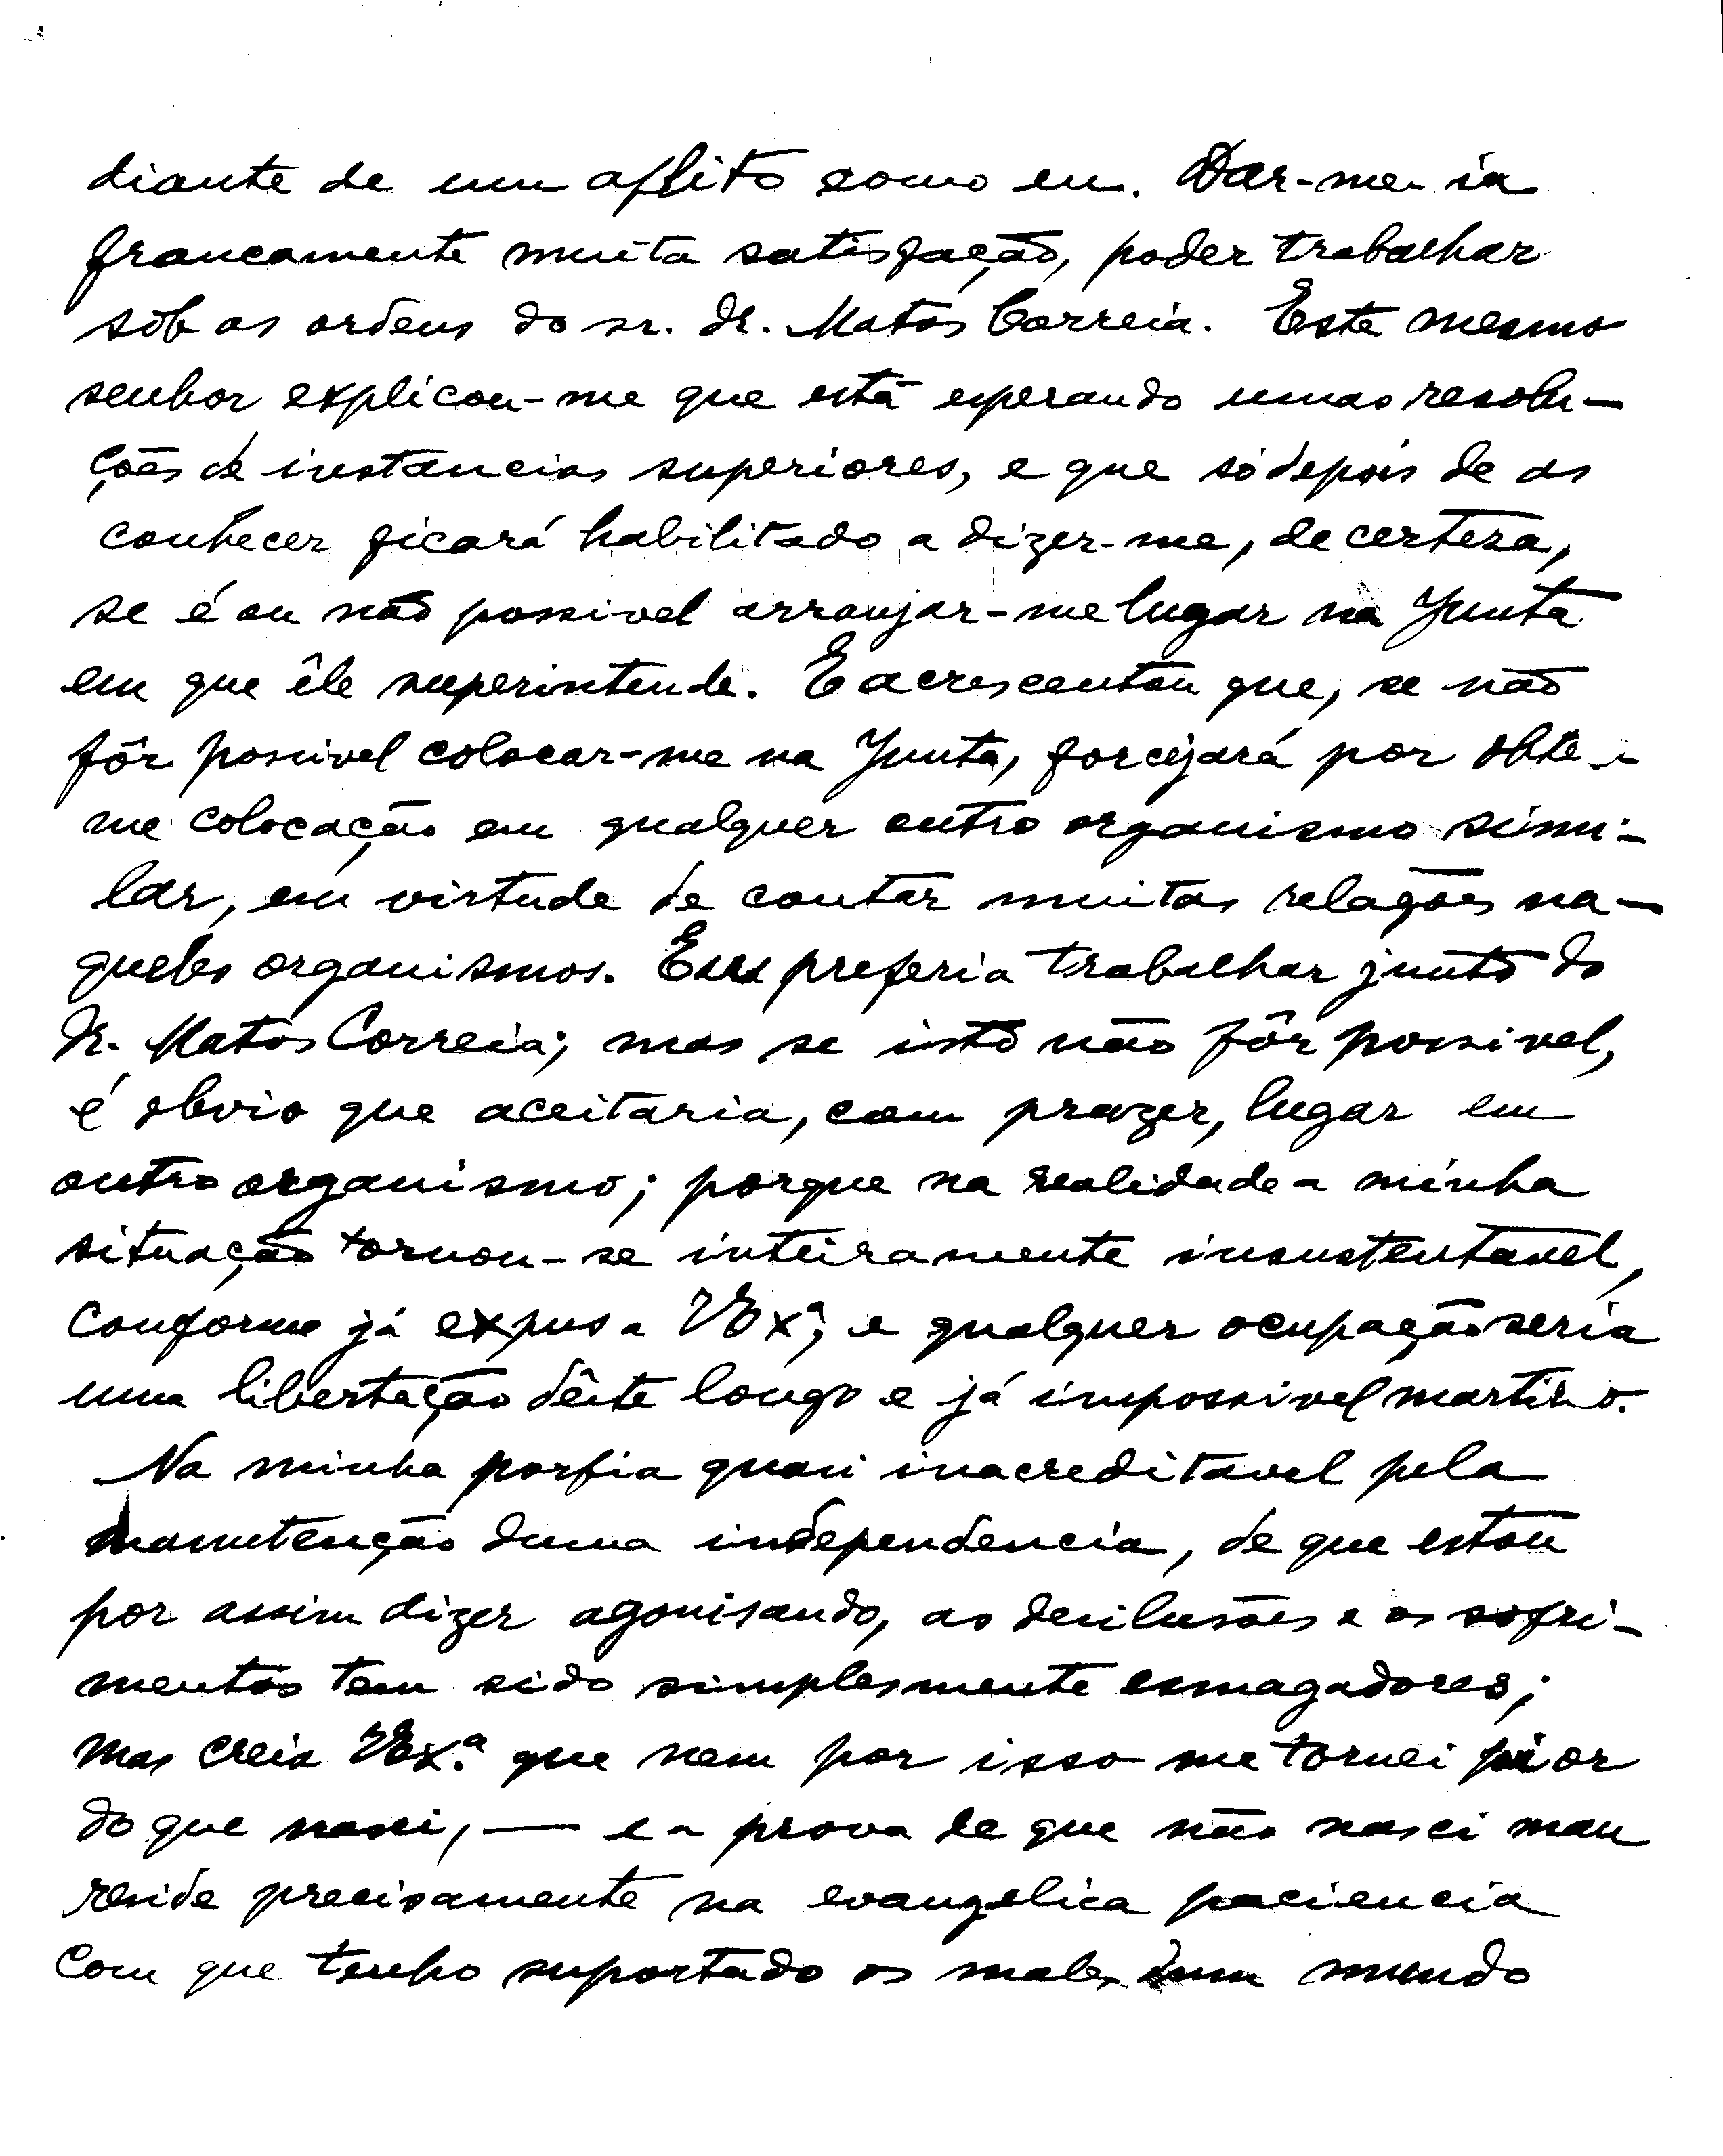 diante de um aflito como eu. Dar-me-ia
francamente muita satisfação, poder trabalhar
sôb as ordens do sr. dr. Matos Correia. Este mesmo
senhor explicou-me que está esperando umas resolu-
ções de instancias superiores, e que só depois de as
conhecer ficará habilitado a dizer-me, de certeza,
se é ou não possivel arranjar-me lugar na Junta
em que êle superintende. E acrescentou que, se não
fôr possivel colocar-me na Junta, forcejará por obter-
me colocação em qualquer outro organismo simi-
lar, em virtude de contar muitas relações na-
queles organismos. Eu preferia trabalhar junto do
Dr. Matos Correia; mas se isto não fôr possivel,
é obvio que aceitaria, com prazer, lugar em
outro organismo; porque na realidade a minha
situação tornou-se inteiramente insustentavel,
conforme já expus a VExª; e qualquer ocupação seria
uma libertação dêste longo e já impossivel martirio.
Na minha porfia quasi inacreditavel pela
manutenção duma independencia, de que estou
por assim dizer agonisando, as desilusões e os sofri-
mentos tem sido simplesmente esmagadores;
mas creia VEx.ª que nem por isso me tornei pior
do que nasci, — e a prova de que não nasci mau
reside precisamente na evangelica paciencia
com que tenho suportado os males dum mundo